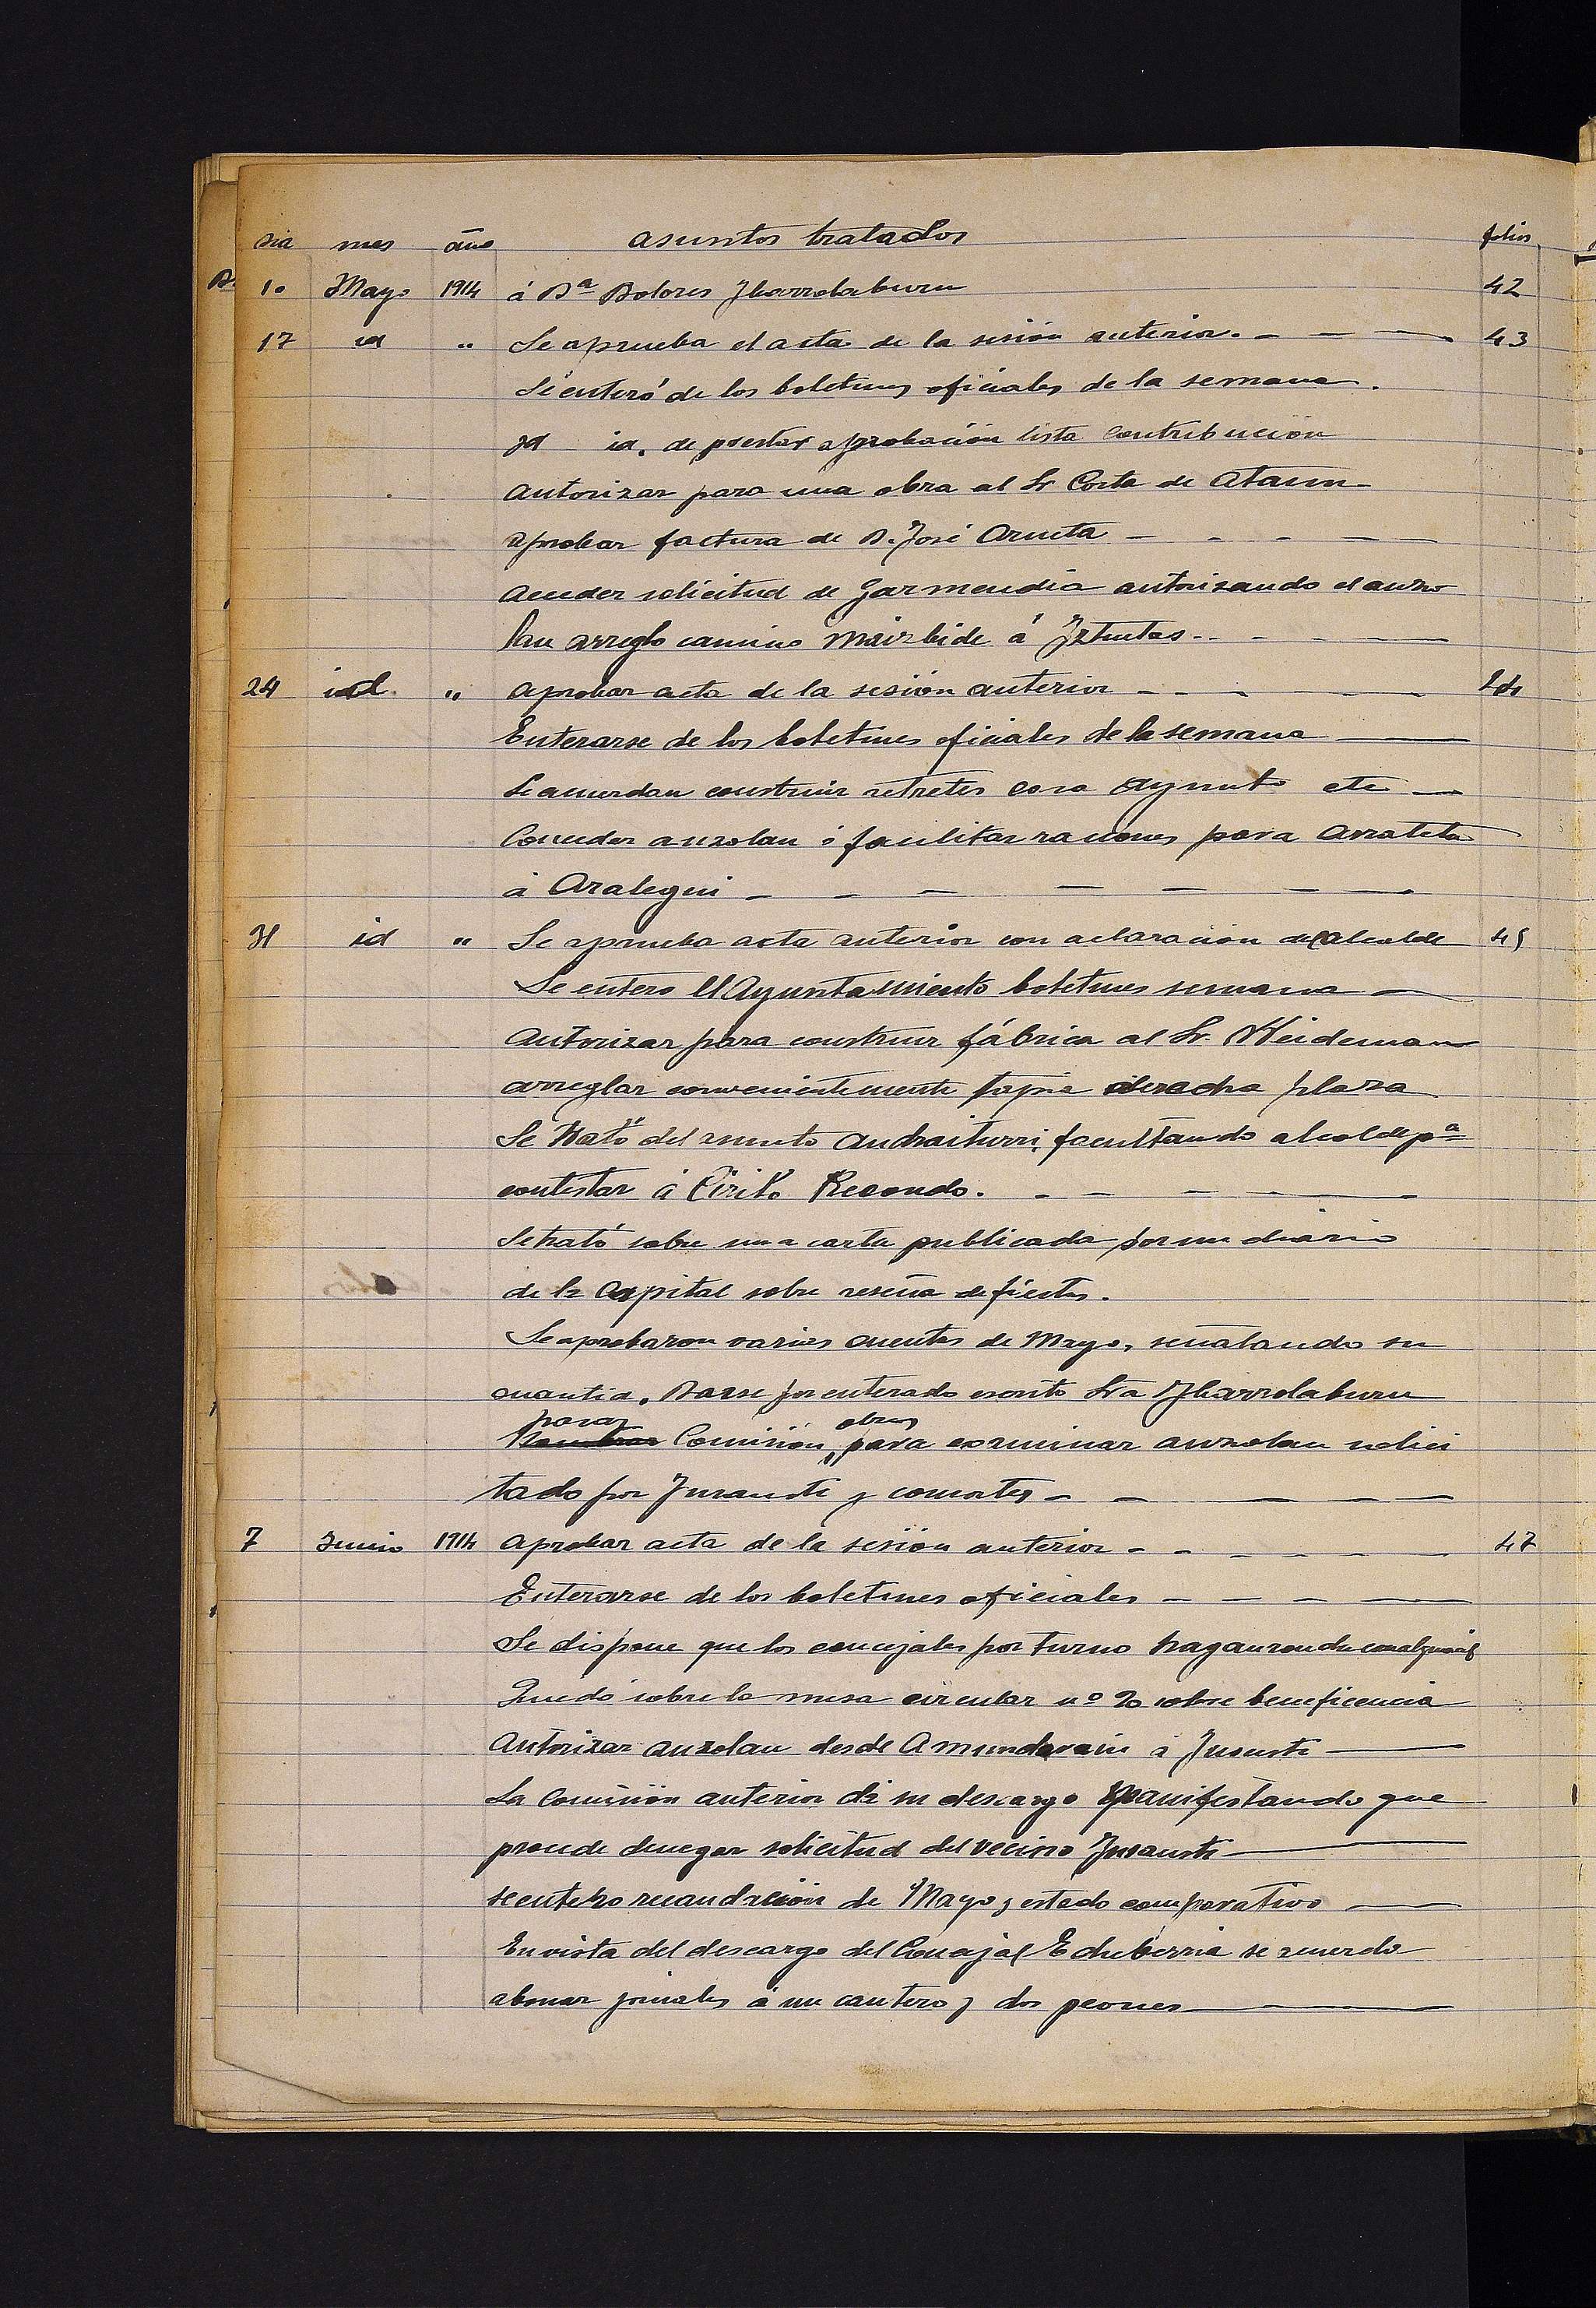 dia mes año asuntos tratados folios
10 Mayo 1914 á Dª Dolores Ybarrolaburu 42
17 id " Se aprueba el acta de la sesión anterior. — — — 43
Se enteró de los boletines oficiales de la semana.
Id id. de prestar aprobación lista contribución
Autorizar para una obra al Sr Corta de Ataun
Aprobar factura de D. José Arrieta — - - — —
Acceder solicitud de Garmendia autorizando el auzo
lan arreglo camino Mairbide á - - — —
24 id. " Aprobar acta de la sesión anterior — - - — — 44
Enterarse de los boletines oficiales de la semana —
Se acuerdan construir retretes casa Aynmto etc —
Conceder auzolan ó facilitar raciones para
á Aralegui — — — — — —
31 id " Se aprueba acta anterior con aclaración del alcalde 45
Se entero el Ayuntamiento boletines semana —
Autorizar para construir fábrica al Sr. Weidemann
arreglar convenientemente tapia derecha plaza
Se trató del asunto Andraiturri, facultando alcalde pª
contestar á Cirilo Recondo. - — — —
Se trató sobre una carta publicada por un diario
de la Capital sobre reseña de fiestas.
Se aprobaron varias cuentas de Mayo, señalando su
cuantia. Darse por enterado escrito Sra Ybarrolaburu
pasar obras
Nombrar Comisión, para examinar auzolan solici
tado por Insausti y consortes — — — — —
7 Junio 1914 Aprobar acta de la sesión anterior - - — — — 47
Enterarse de los boletines oficiales — — — —
Se dispone que los concejales por turno hagan ronda con alguacil
Quedó sobre la mesa circular nº 20 sobre beneficencia
Autorizar auzolan desde Amundarain á Insausti —
La Comisión anterior da su descargo manifestando que
procede denegar solicitud del vecino Insausti —
se entero recaudación de Mayo y estado comparativo —
En vista del descargo del Concejal Echeberria se acuerda
abonar jornales á un cantero y dos peones —